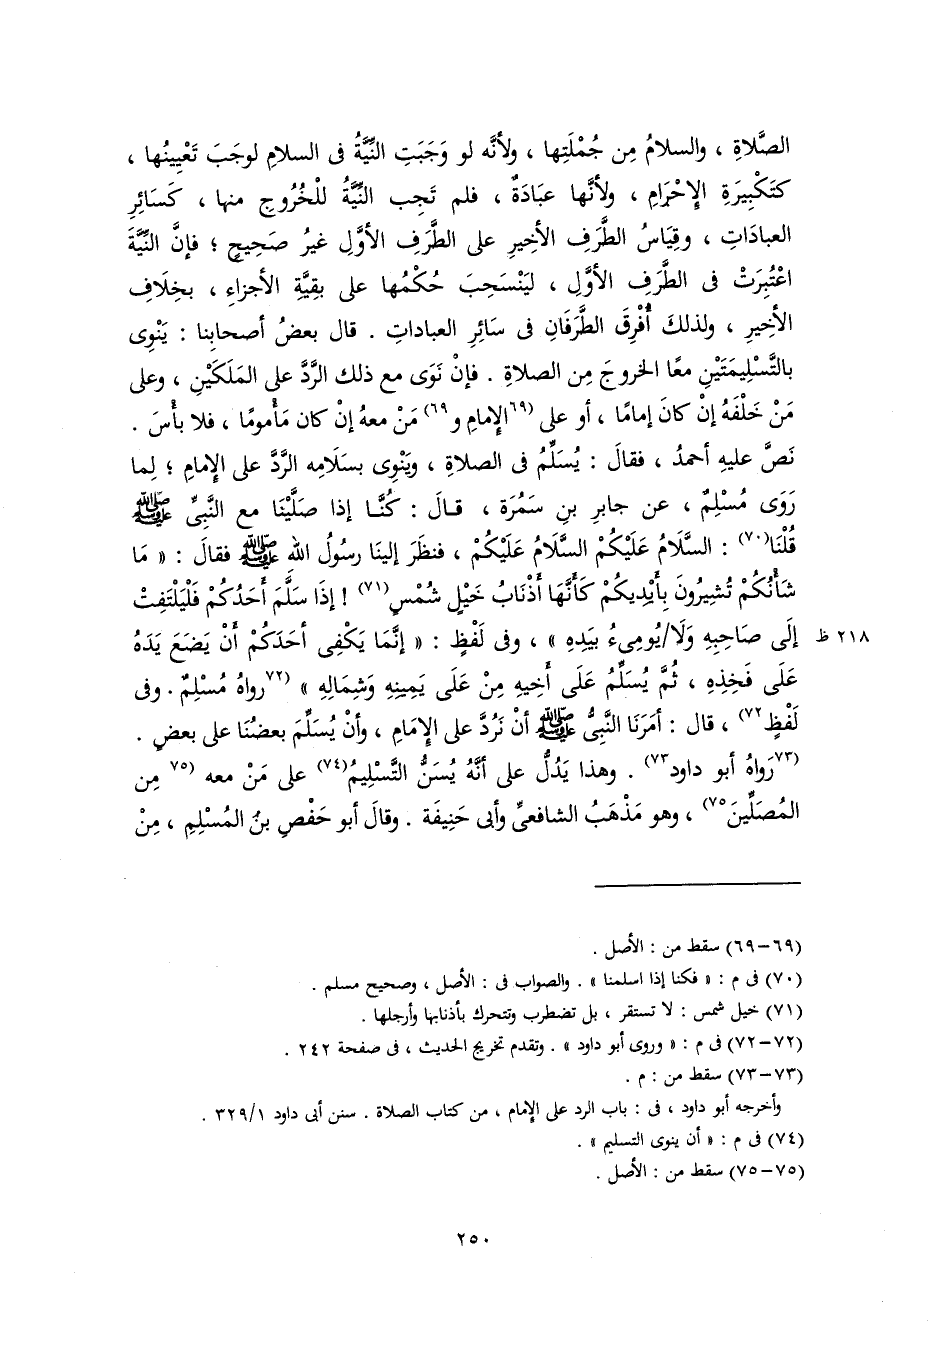 الصَّلاةِ ، والسلامُ مِن جُمْلَتِها ، ولأنَّه لو وَجَبَتِ النِّيَّةُ فى السلامِ لوجَبَ تَعْيِينُها ،
كتَكْبِيرَةِ الإِحْرَامِ ، ولأنَّها عبَادَةٌ ، فلم تَجِب النِّيَّةُ للْخُرُوجِ منها ، كَسَائِرِ
العباداتِ ، وقِيَاسُ الطَّرَفِ الأخِيرِ على الطَّرَفِ الأوَّلِ غيرُ صَحِيحٍ ؛ فإنَّ النِّيَّةَ
اعْتُبِرَتْ فى الطَّرَفِ الأوَّلِ ، ليَنْسَحِبَ حُكْمُها على بقِيَّةِ الأجزاءِ ، بخِلَافِ
الأخِيرِ ، ولذلكَ اُفْرِقَ الطَّرَفَانِ فى سَائِرِ العباداتِ . قال بعضُ أصحابِنا : يَنْوِى
بالتَّسْلِيمَتَيْنِ معًا الخروجَ مِن الصلاةِ . فإنْ نَوَى مع ذلك الرَّدَّ على المَلَكَيْنِ ، وعلى
مَنْ خَلْفَهُ إنْ كانَ إمامًا ، أو على (٦٩الإمامِ و٦٩) مَنْ معه إنْ كان مَأْمومًا ، فلا بأْسَ .
نَصَّ عليه أحمدُ ، فقالَ : يُسَلِّمُ فى الصلاةِ ، ويَنْوِى بسَلَامِه الرَّدَّ على الإِمامِ ؛ لِما
رَوَى مُسْلِمٌ ، عن جابرِ بنِ سَمُرَة ، قـالَ : كُنَّـا إذا صَلَّيْنَا مع النَّبِىِّ ﷺ
قُلْنَا(٧٠) : السَّلَامُ عَلَيْكُمْ السَّلَامُ عَلَيْكُمْ ، فنظَرَ إلينَا رسولُ اللهِ ﷺ فقالَ : « مَا
شَأْنُكُمْ تُشِيرُونَ بِأَيْدِيكُمْ كَأَنَّهَا أَذْنَابُ خَيْلٍ شُمْسٍ(٧١) ! إذَا سَلَّمَ أَحَدُكُمْ فَلْيَلْتَفِتْ
إلَى صَاحِبِهِ وَلَا/يُومِىءُ بيَدِهِ » ، وفى لَفْظٍ : « إنَّمَا يَكْفِى أحَدَكُمْ أَنْ يَضَعَ يَدَهُ ٢١٨ ظ
عَلَى فَخِذِهِ ، ثُمَّ يُسَلِّمُ عَلَى أَخِيهِ مِنْ عَلَى يَمِينِهِ وَشِمَالِهِ » (٧٢رواهُ مُسْلِمٌ . وفى
لَفْظٍ٧٢) ، قال : أمَرَنَا النَّبِىُّ ﷺ أنْ نَرُدَّ على الإِمَامِ ، وأنْ يُسَلِّمَ بعضُنَا على بعضٍ .
(٧٣رَواهُ أبو داود٧٣) . وهذا يَدُلُّ على أنَّهُ يُسَنُّ التَّسْلِيمُ(٧٤) على مَنْ معه (٧٥ مِن
المُصَلِّينَ٧٥) ، وهو مَذْهَبُ الشافعىِّ وأبى حَنِيفَة . وقالَ أبو حَفْصِ بنُ المُسْلِمِ ، مِنْ
(٦٩-٦٩) سقط من : الأصل .
(٧٠) فى م : « فكنا إذا اسلمنا » . والصواب فى : الأصل ، وصحيح مسلم .
(٧١) خيل شمس : لا تستقر ، بل تضطرب وتتحرك بأذنابها وأرجلها .
(٧٢-٧٢) فى م : « وروى أبو داود » . وتقدم تخريج الحديث ، فى صفحة ٢٤٢ .
(٧٣-٧٣) سقط من : م .
وأخرجه أبو داود ، فى : باب الرد على الإمام ، من كتاب الصلاة . سنن أبى داود ٣٢٩/١ .
(٧٤) فى م : « أن ينوى التسليم » .
(٧٥-٧٥) سقط من : الأصل .
٢٥٠